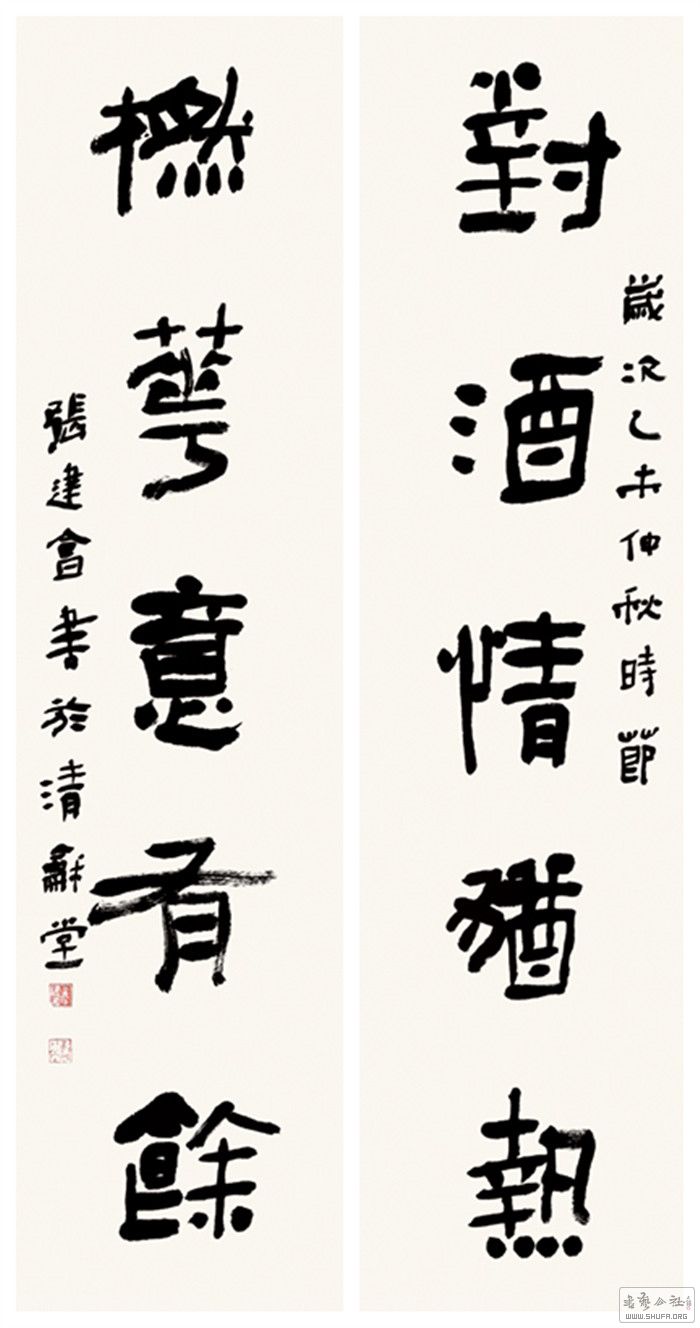 對酒情猶熱
歲次乙未仲秋時節
華意有餘
張建會書於清龢堂
書藝公社
WWW.SHUFA.ORG